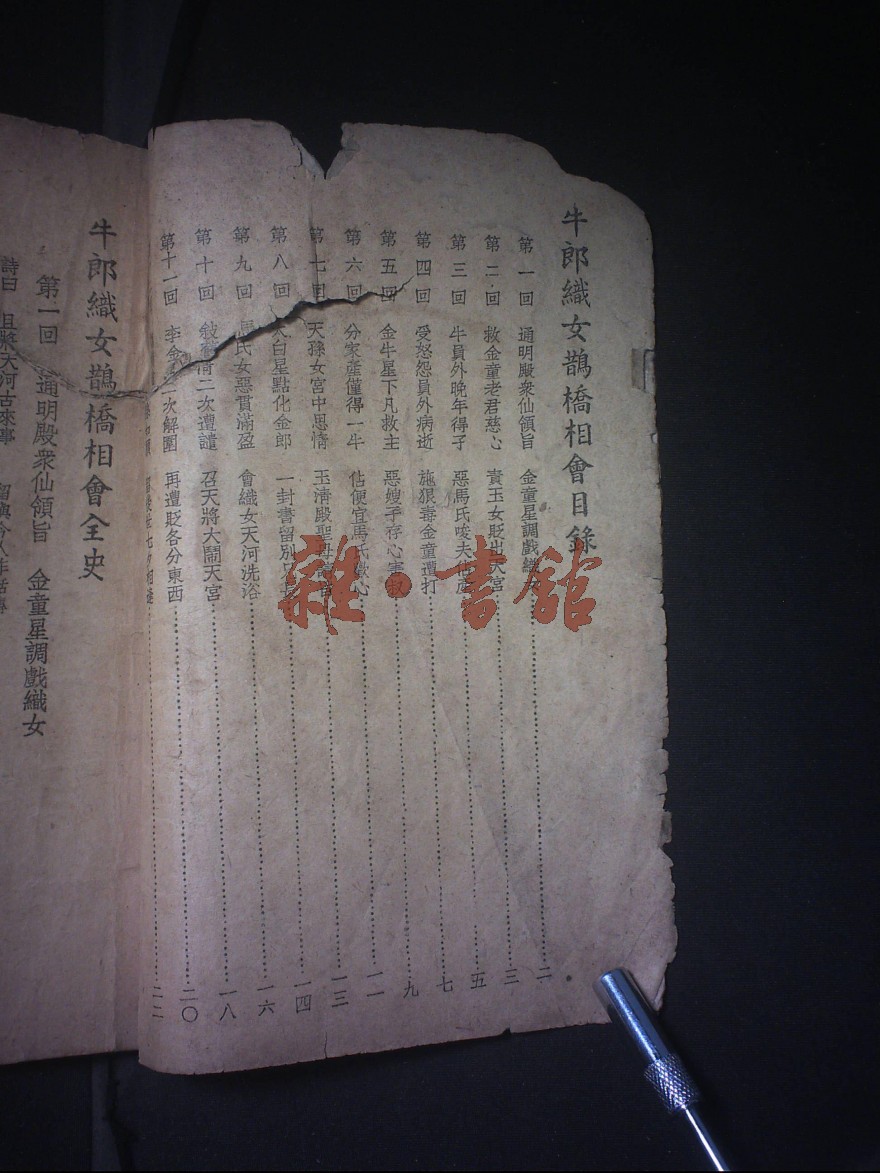 牛郎織女鵲橋相會目錄
第一回 通明殿衆仙領旨 金童星調戲織女……二
第二回 救金童老君慈心 責玉女貶出天宮……三
第三回 牛員外晚年得子 惡馬氏唆夫……五
第四回 受怨怨員外病逝 施狠毒金童遭打……七
第五回 金牛星下凡救主 惡嫂子存心害叔……九
第六回 分家產僅得一牛 佔便宜馬氏……心……一一
第七回 天孫女宮中思情 玉清殿聖母……一三
第八回 太白星點化金郎 一封書留別……一四
第九回 馬氏女惡貫滿盈 會織女天河洗浴……一六
第十回 敍舊情二次遭譴 召天將大鬧天宮……一八
第十一回 李金星二次解圍 再遭貶各分東西……二〇
七夕相逢……二二
牛郎織女鵲橋相會全史
第一回 通明殿衆仙領旨 金童星調戲織女
詩曰 且將天河古來事 留與今人作話傳
雜·書館